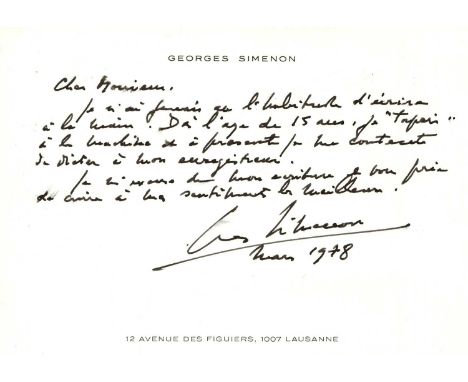 GEORGES SIMENON
Cher Monsieur,
Je n'ai jamais eu l'habitude d'écrire
à la main. Dès l'age de 15 ans, je "tapais"
à la machine et à présent je me contente
de dicter à mon enregistreur.
Je m'excuse de mon écriture et vous prie
de croire à mes sentiments les meilleurs.
Georges Simenon
Mars 1978
12 AVENUE DES FIGUIERS, 1007 LAUSANNE